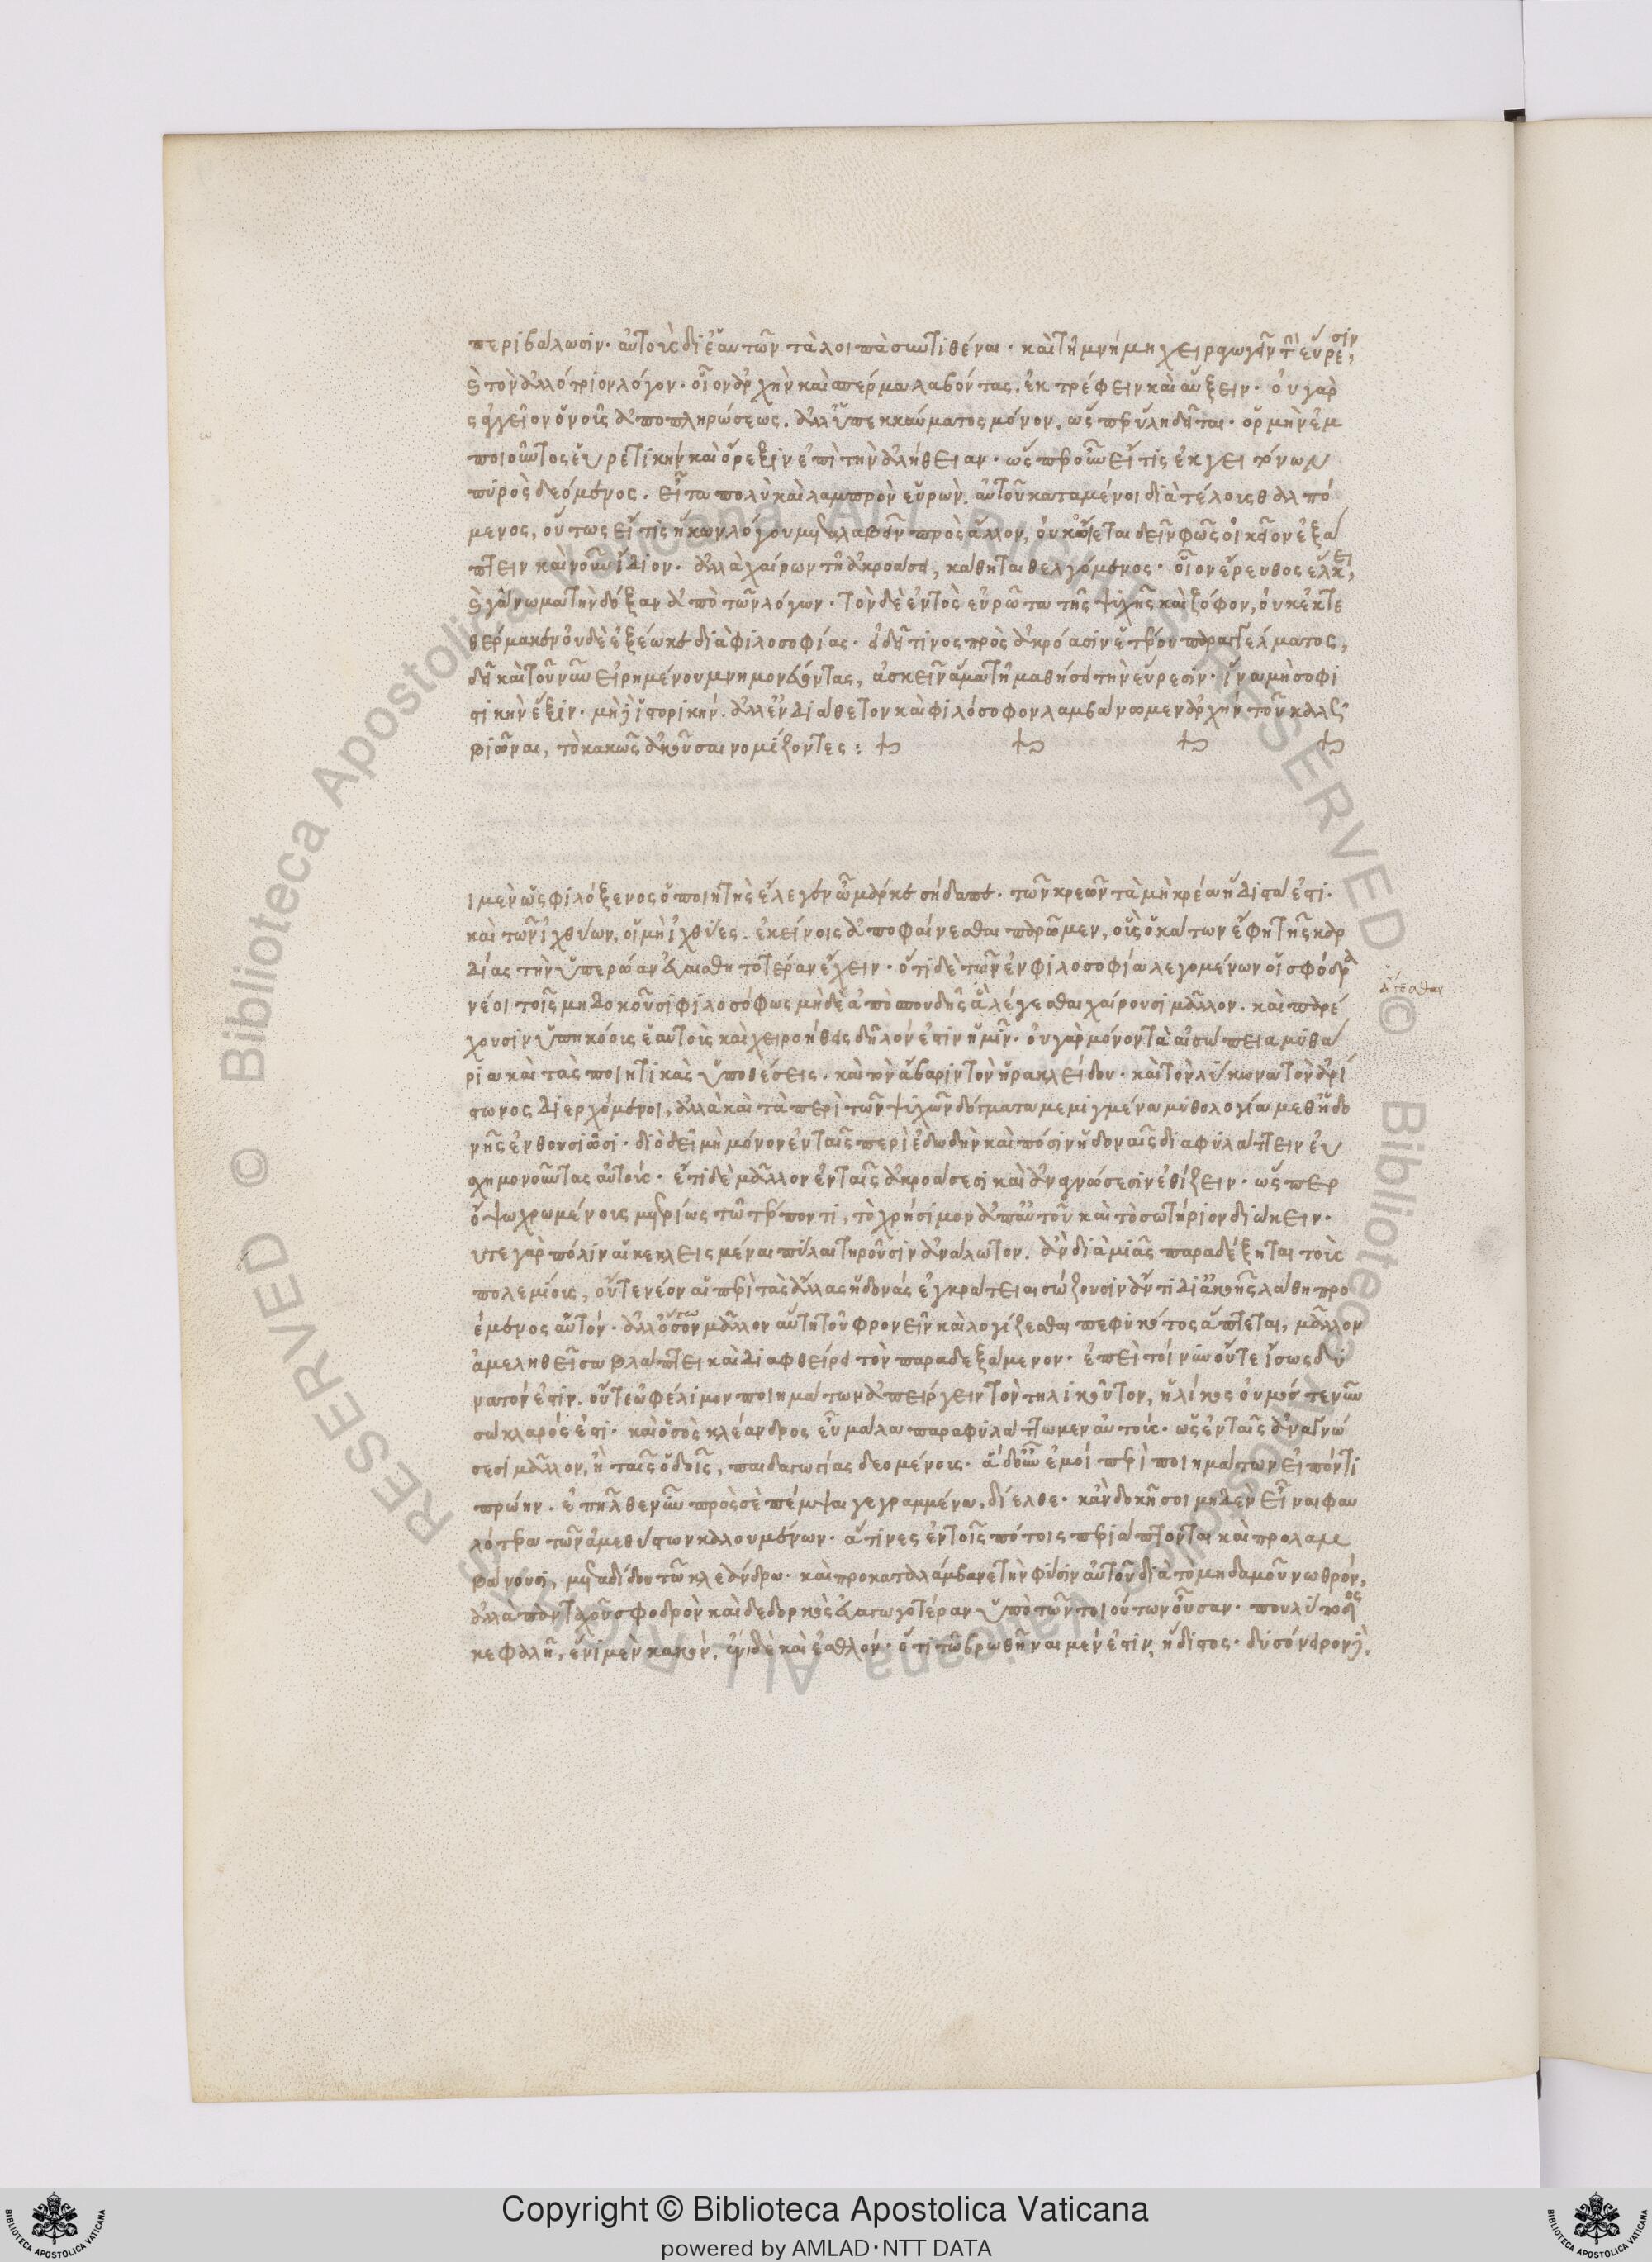 περιβάλωσιν· αὐτοὺς δι' ἑαυτῶν τὰ λοιπὰ συντιθέναι· καὶ τῇ μνήμῃ χειραγωγεῖν τὴν εὕρεσιν,
καὶ τὸν ἀλλότριον λόγον· οἷον ἀρχὴν καὶ σπέρμα λαβόντας, ἐκτρέφειν καὶ αὔξειν· οὐ γὰρ
ὡς ἀγγεῖον ὁ νοῦς ἀποπληρώσεως, ἀλλ' ὑπεκκαύματος μόνον, ὥσπερ ὕλη δεῖται· ὁρμὴν ἐμ
ποιοῦντος εὑρετικὴν καὶ ὄρεξιν ἐπὶ τὴν ἀλήθειαν· ὥσπερ οὖν εἴ τις ἐκ γειτόνων
πυρὸς δεόμενος. εἶτα πολὺ καὶ λαμπρὸν εὑρὼν, αὐτοῦ καταμένοι διὰ τέλους θαλπό
μενος, οὕτως εἴ τις ἥκων λόγου μεταλαβεῖν πρὸς ἄλλον, οὐκ οἴεται δεῖν φῶς οἰκεῖον ἐξά
πτειν καὶ νοῦν ἴδιον· ἀλλὰ χαίρων τῇ ἀκροάσει, κάθηται θελγόμενος· οἷον ἔρευθος ἕλκει,
καὶ γάνωμα τὴν δόξαν ἀπὸ τῶν λόγων· τὸν δὲ ἐντὸς εὐρῶτα τῆς ψυχῆς καὶ ζόφον, οὐκ ἐκτε
θέρμακεν οὐδὲ ἐξέωκε διὰ φιλοσοφίας· εἰ δεῖ τινος πρὸς ἀκρόασιν ἑτέρου παραγγέλματος,
δεῖ καὶ τοῦ νῦν εἰρημένου μνημονεύοντας, ἀσκεῖν ἅμα τῇ μαθήσει τὴν εὕρεσιν· ἵνα μὴ σοφι
στικὴν ἕξιν· μὴ δὲ ἱστορικήν· ἀλλ' ἐνδιάθετον καὶ φιλόσοφον λαμβάνωμεν ἀρχὴν τοῦ καλῶς
βιῶναι, τὸ κακῶς ἀκοῦσαι νομίζοντες:
ι μὲν ὡς φιλόξενος ὁ ποιητὴς ἔλεγεν ὦ μάρκε σήδαπε· τῶν κρεῶν τὰ μὴ κρέα ἥδιστά ἐστι·
καὶ τῶν ἰχθύων, οἱ μὴ ἰχθύες. ἐκείνοις ἀποφαίνεσθαι παρῶμεν, οἷς ὁ κάτων ἔφη τῆς καρ
δίας τὴν ὑπερῴαν εὐαισθητοτέραν ἔχειν· ὅτι δὲ τῶν ἐν φιλοσοφίᾳ λεγομένων οἱ σφόδρα
νέοι τοῖς μὴ δοκοῦσι φιλοσόφως μηδὲ ἀπὸ σπουδῆς λέγεσθαι χαίρουσι μᾶλλον. καὶ παρέ
χουσιν ὑπηκόους ἑαυτοὺς καὶ χειροήθεις δῆλόν ἐστιν ἡμῖν· οὐ γὰρ μόνον τὰ αἰσώπεια μυθά
ρια καὶ τὰς ποιητικὰς ὑποθέσεις· καὶ τὸν ἄβαριν τὸν ἡρακλείδου· καὶ τὸν λύκωνα τὸν ἀρί
στωνος διερχόμενοι, ἀλλὰ καὶ τὰ περὶ τῶν ψυχῶν δόγματα μεμιγμένα μυθολογίᾳ μεθ' ἡδο
νῆς ἐνθουσιῶσι· διὸ δεῖ μὴ μόνον ἐν ταῖς περὶ ἐδωδὴν καὶ πόσιν ἡδοναῖς διαφυλάττειν εὐ
σχημονοῦντας αὐτούς· ἔτι δὲ μᾶλλον ἐν ταῖς ἀκροάσεσι καὶ ἀναγνώσεσιν ἐθίζειν· ὥσπερ
ὄψῳ χρωμένους μετρίως τῷ τέρποντι, τὸ χρήσιμον ἀπ' αὐτοῦ καὶ τὸ σωτήριον διώκειν·
υτε γὰρ πόλιν αἱ κεκλεισμέναι πύλαι τηροῦσιν ἀνάλωτον. ἂν διὰ μιᾶς παραδέξηται τοὺς
πολεμίους, οὔτε νέον αἱ περὶ τὰς ἄλλας ἡδονὰς ἐγκράτειαι σώζουσιν ἄν τι δι' ἀκοῆς λάθῃ προ
έμενος αὑτόν· ἀλλ' ὅσον μᾶλλον αὕτη τοῦ φρονεῖν καὶ λογίζεσθαι πεφυκότος ἅπτεται, μᾶλλον
ἀμεληθεῖσα βλάπτει καὶ διαφθείρει τὸν παραδεξάμενον· ἐπεὶ τοίνυν οὔτε ἴσως δυ
νατόν ἐστιν. οὔτε ὠφέλιμον ποιημάτων ἀπείργειν τὸν τηλικοῦτον, ἡλίκος οὑμός τε νῦν
σώκλαρός ἐστι· καὶ ὁ σὸς κλέανδρος εὖ μάλα παραφυλάττωμεν αὐτούς· ὡς ἐν ταῖς ἀναγνώ
σεσι μᾶλλον, ἢ ταῖς ὁδοῖς, παιδαγωγίας δεομένους· ἃ δ' οὖν ἐμοί περὶ ποιημάτων εἰπόντι
πρώην. ἐπῆλθε νῦν πρὸς σὲ πέμψαι γεγραμμένα, δίελθε· κἂν δοκῇ σοι μηδὲν εἶναι φαυ
λότερα τῶν ἀμεθύστων καλουμένων· ἅ τινες ἐν τοῖς πότοις περιάπτονται καὶ προλαμ
βάνουσι, μεταδίδου τῷ κλεάνδρῳ· καὶ προκαταλάμβανε τὴν φύσιν αὐτοῦ διὰ τὸ μηδαμοῦ νωθρόν,
ἀλλὰ πανταχοῦ σφοδρὸν καὶ δεδορκὸς εὐαγωγοτέραν ὑπὸ τῶν τοιούτων οὖσαν· πουλύποδος
κεφαλῇ, ἔνι μὲν κακόν. ἐν δὲ καὶ ἐσθλόν· ὅτι τῷ βρωθῆναι μέν ἐστιν, ἥδιστος· δυσόνειρον δὲ,
Copyright © Biblioteca Apostolica Vaticana
powered by AMLAD·NTT DATA
RESERVED © Biblioteca Apostolica Vaticana ALL RIGHTS RESERVED © Biblioteca Apostolica Vaticana ALL RIGHTS